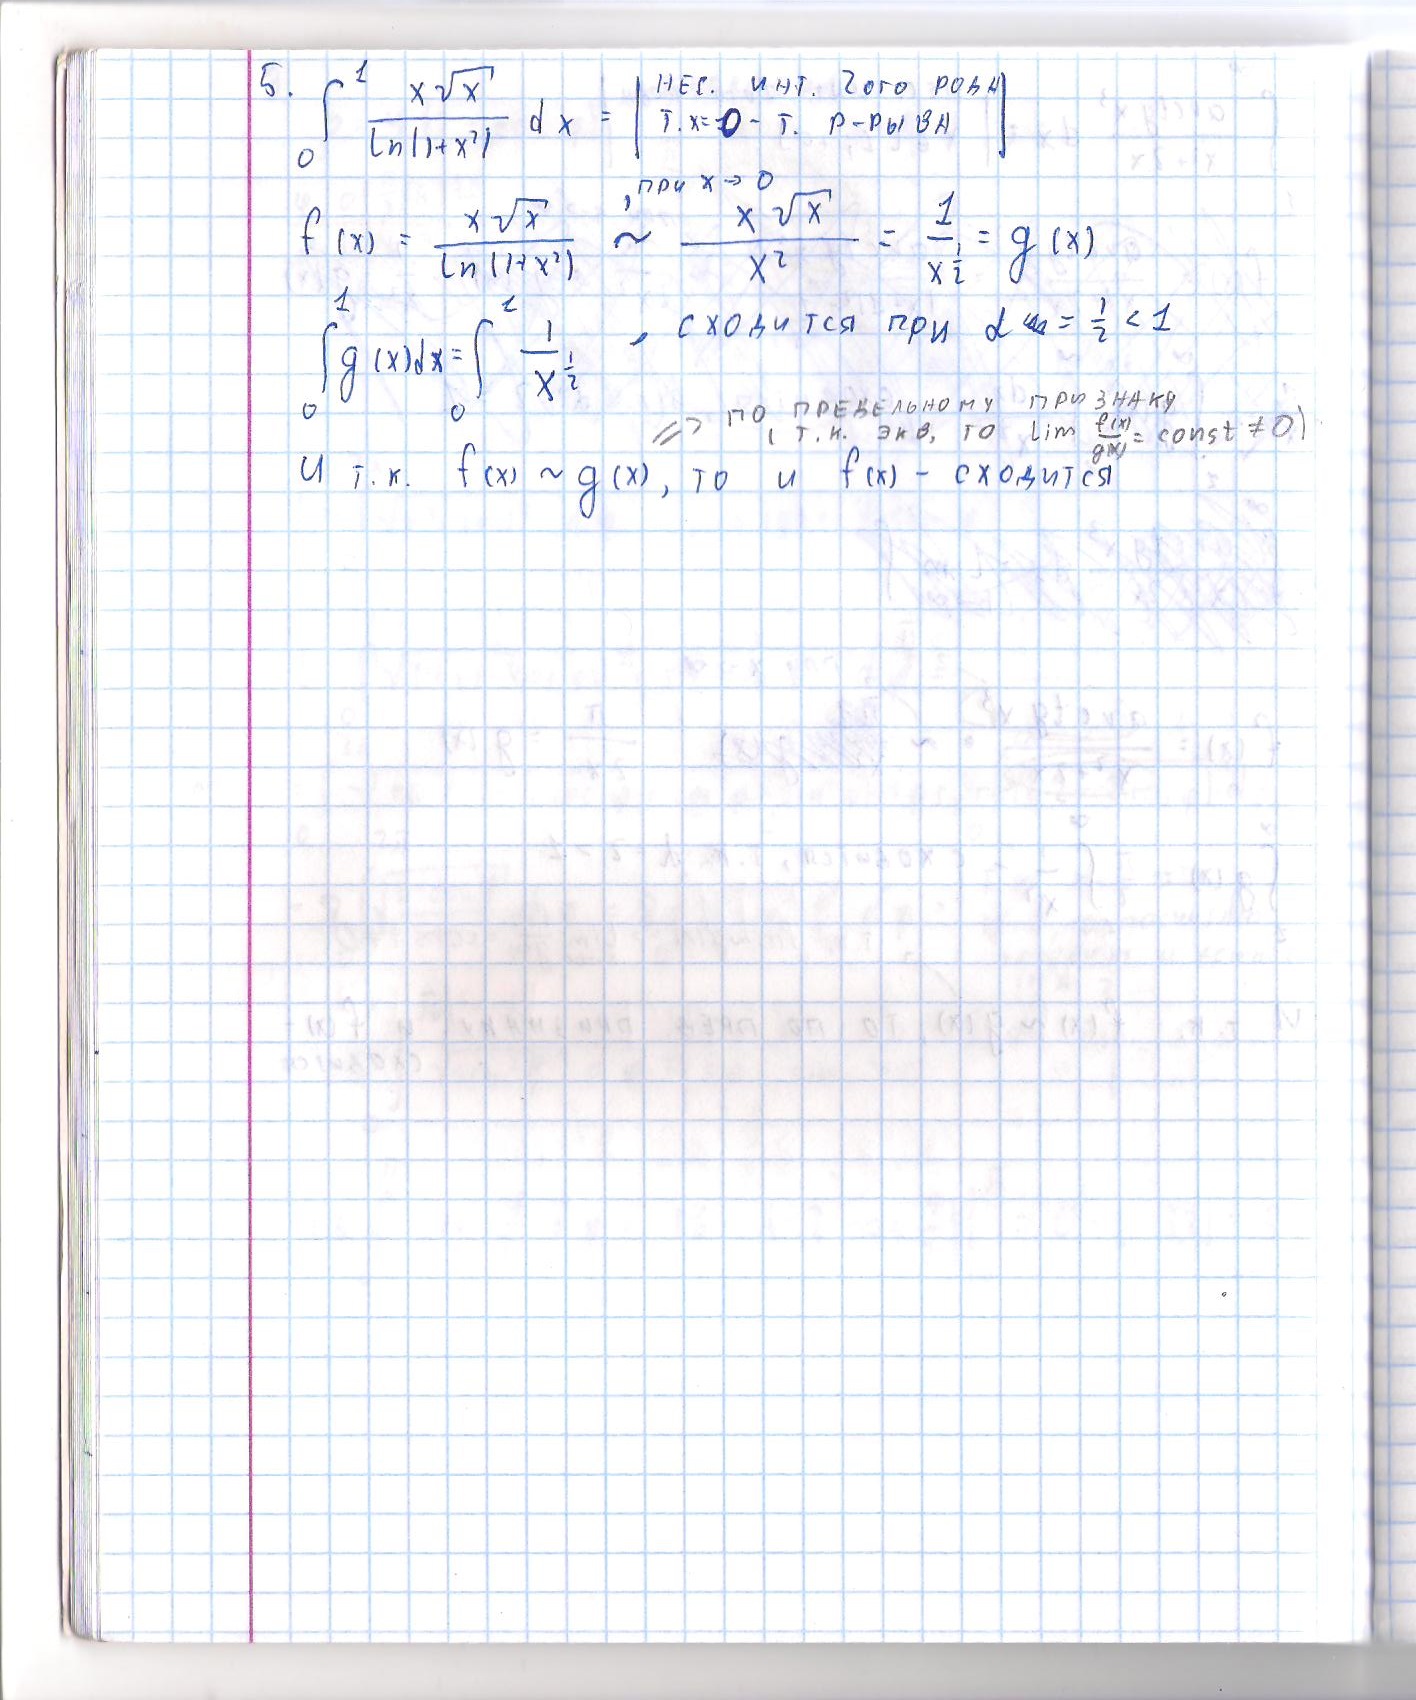 5. ∫₀¹ x√x / ln(1+x²) dx = | НЕС. ИНТ. 2ого РОДА
Т. x=0 - Т. Р-РЫВА |
, при x → 0
f(x) = x√x / ln(1+x²) ~ x√x / x² = 1 / x^(1/2) = g(x)
∫₀¹ g(x)dx = ∫₀¹ 1 / x^(1/2) , сходится при α = 1/2 < 1
=> ПО ПРЕДЕЛЬНОМУ ПРИЗНАКУ
( Т.К. ЭКВ, ТО lim f(x)/g(x) = const ≠ 0)
И т.к. f(x) ~ g(x), то и f(x) - сходится